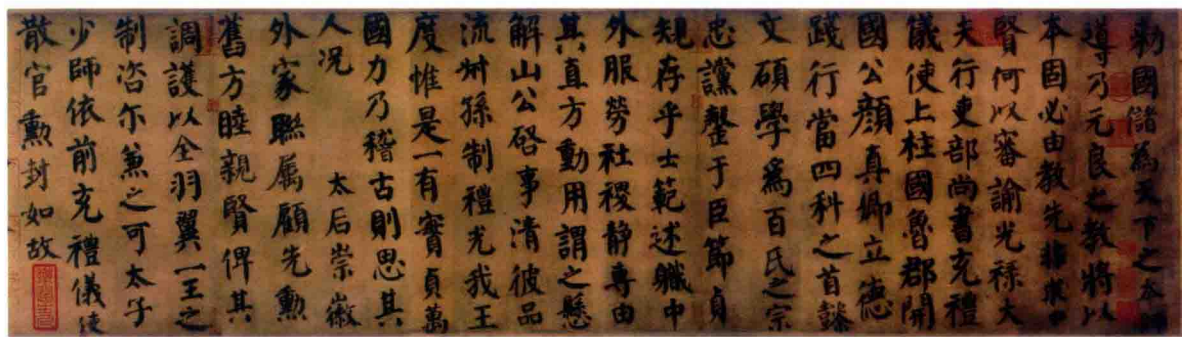 勅國儲為天下之本師
導乃元良之教將以
本固必由教先非求忠
賢何以審諭光祿大
夫行吏部尚書充禮
儀使上柱國魯郡開
國公顏真卿立德
踐行當四科之首懿
文碩學為百氏之宗
忠讜罄于臣節貞
規存乎士範述職中
外服勞社稷靜專由
其直方動用謂之懸
解山公啓事清彼品
流叔孫制禮光我王
度惟是一有實貞萬
國力乃稽古則思其
人况 太后崇徽
外家聯屬顧先勳
舊方睦親賢俾其
調護以全羽翼一王之
制咨尔兼之可太子
少師依前充禮儀使
散官勲封如故